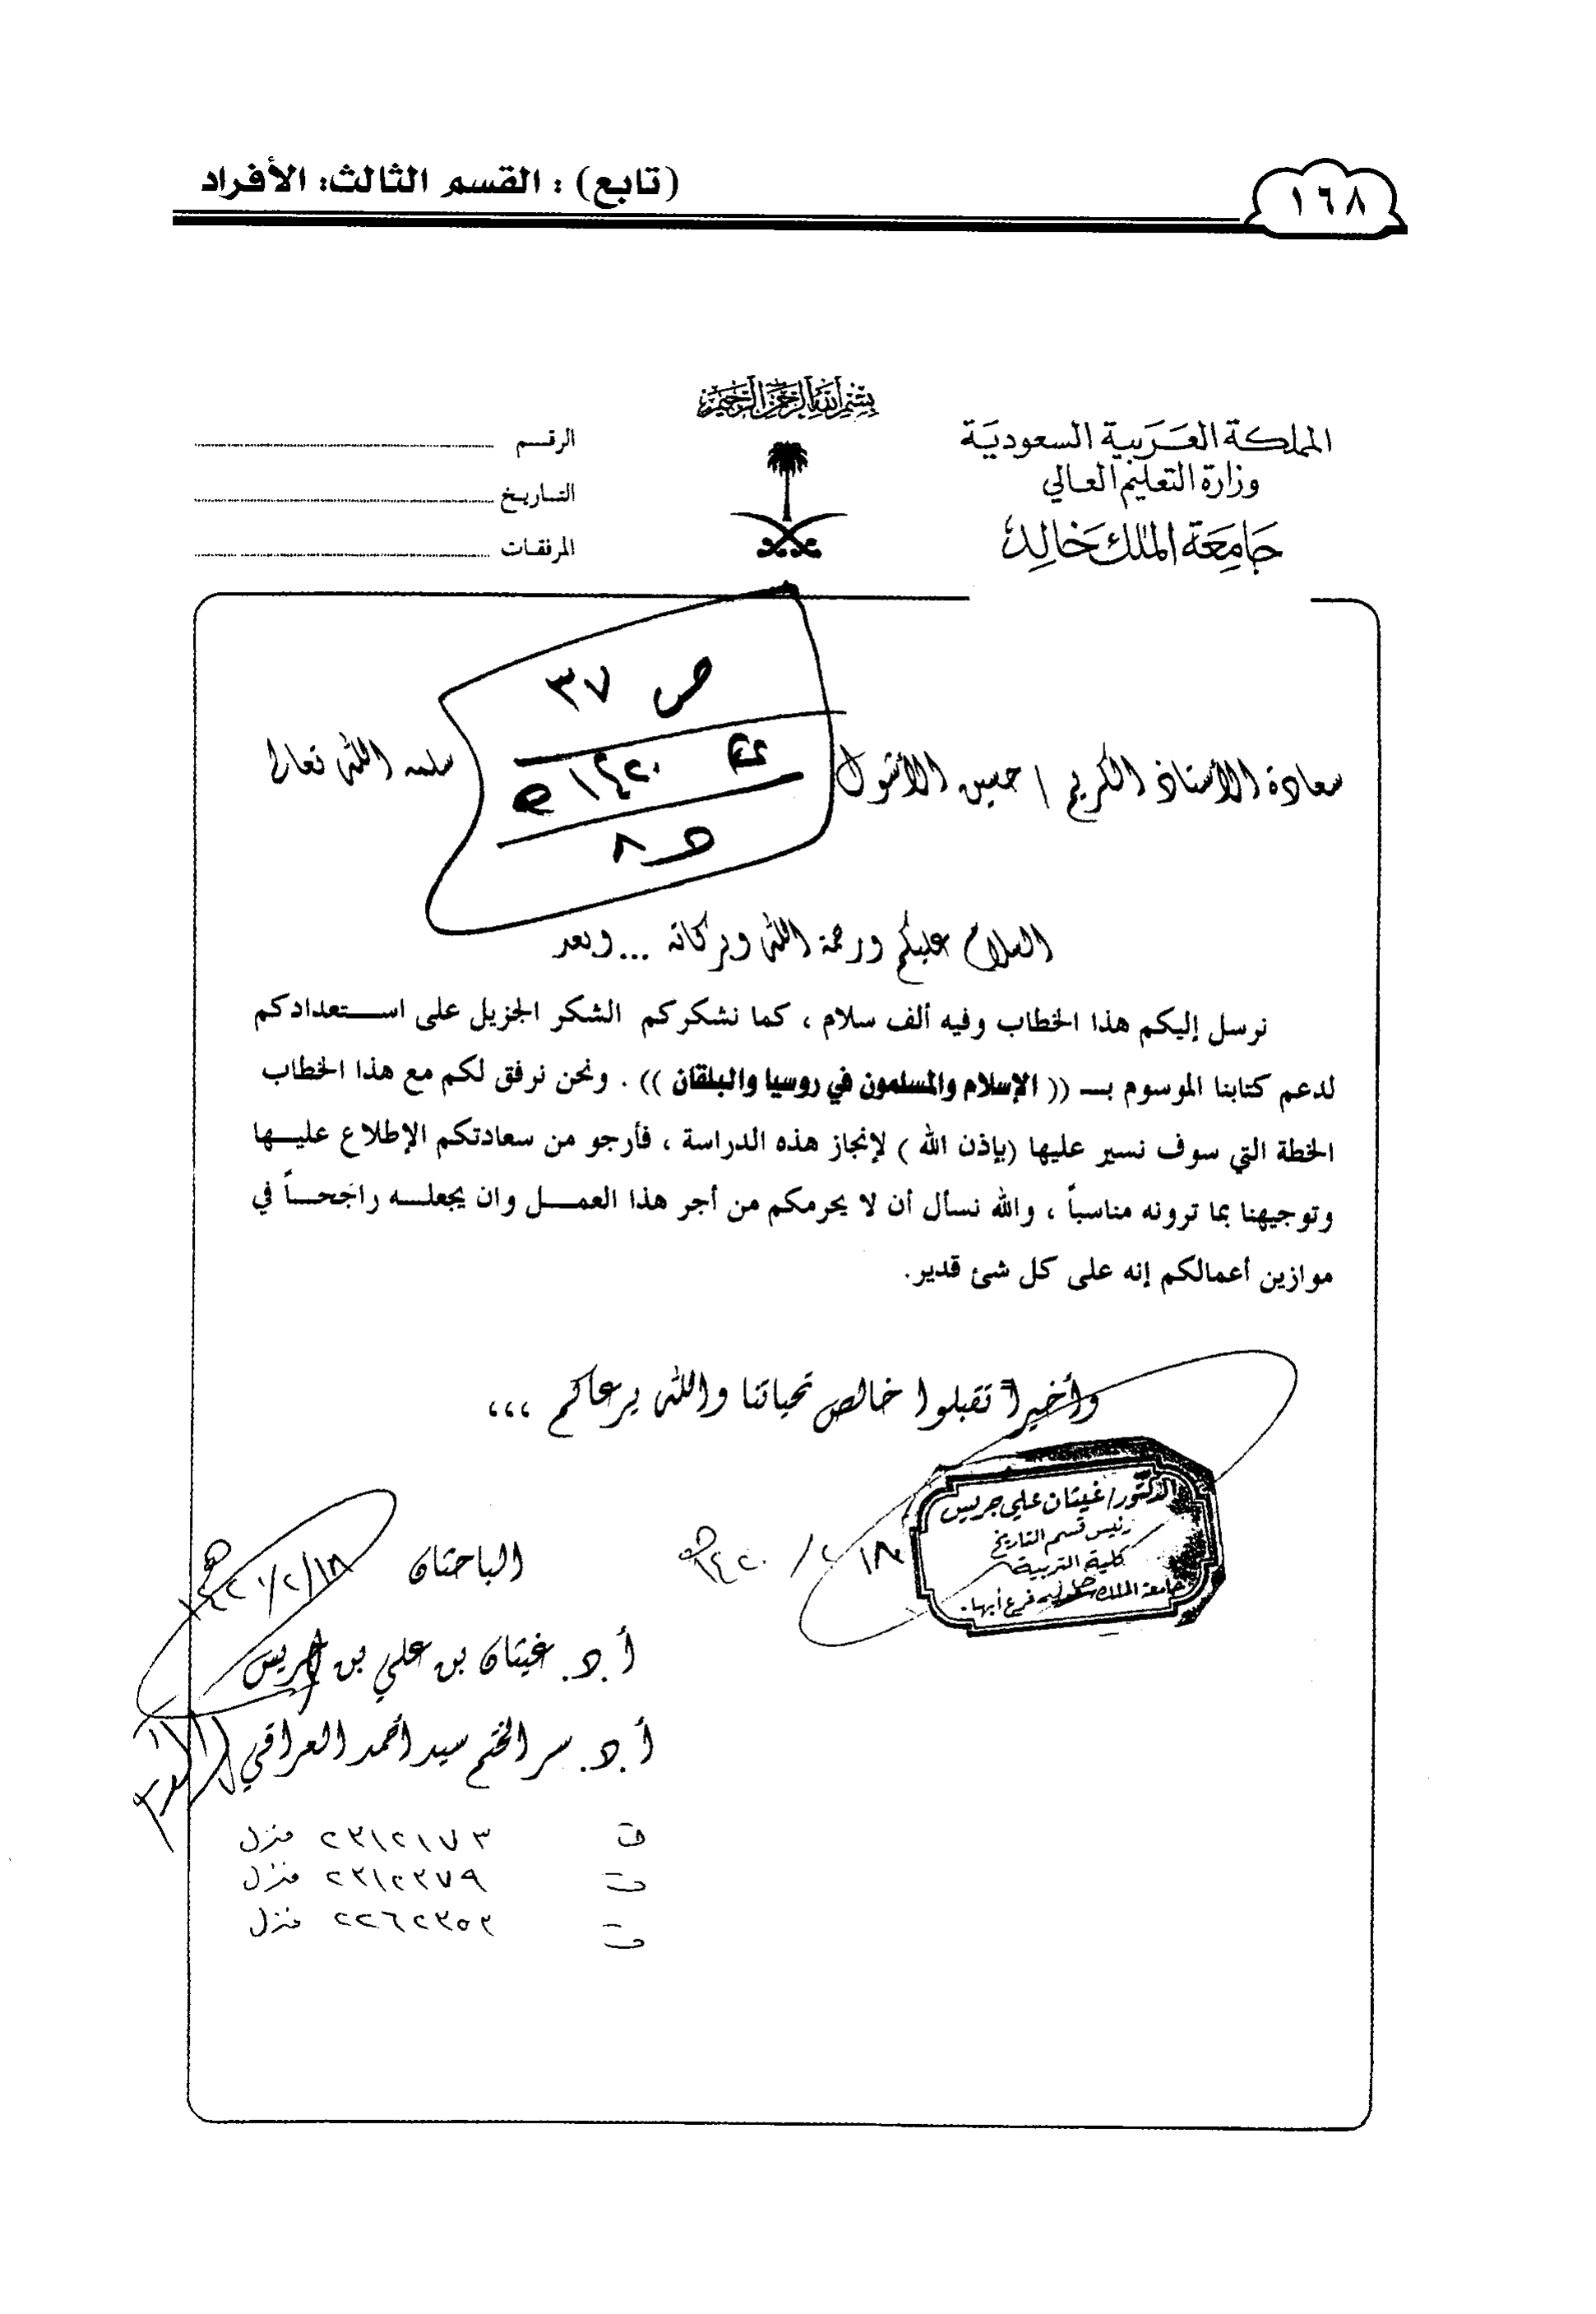 (تابع) : القسم الثالث: الأفراد
١٦٨
بسم الله الرحمن الرحيم
المملكة العربية السعودية
وزارة التعليم العالي
جامعة الملك خالد
الرقم
التاريخ
المرفقات
ص ٣٧
١٤٢٠ هـ
سعادة الأستاذ الكريم / حسين الأشول سلمه الله تعالى
السلام عليكم ورحمة الله وبركاته ... وبعد
نرسل إليكم هذا الخطاب وفيه ألف سلام ، كما نشكركم الشكر الجزيل على استعدادكم
لدعم كتابنا الموسوم بـ (( الإسلام والمسلمون في روسيا والبلقان )) . ونحن نرفق لكم مع هذا الخطاب
الخطة التي سوف نسير عليها (بإذن الله ) لإنجاز هذه الدراسة ، فأرجو من سعادتكم الإطلاع عليها
وتوجيهنا بما ترونه مناسباً ، والله نسأل أن لا يحرمكم من أجر هذا العمل وان يجعله راجحاً في
موازين أعمالكم إنه على كل شئ قدير.
وأخيراً تقبلوا خالص تحياتنا والله يرعاكم ،،،
الدكتور/ غيثان علي جريس
رئيس قسم التاريخ
كلية التربية
جامعة الملك فرع أبها.
١٨/٢/١٤٢٠هـ
الباحثان
١٨/٢/١٤٢٠هـ
أ.د. غيثان بن علي بن جريس
أ.د. سر الختم سيد أحمد العراقي
ت ٢٣١٢١٧٣ منزل
ت ٢٣١٢٣٧٩ منزل
ت ٢٢٦٢٣٥٣ منزل